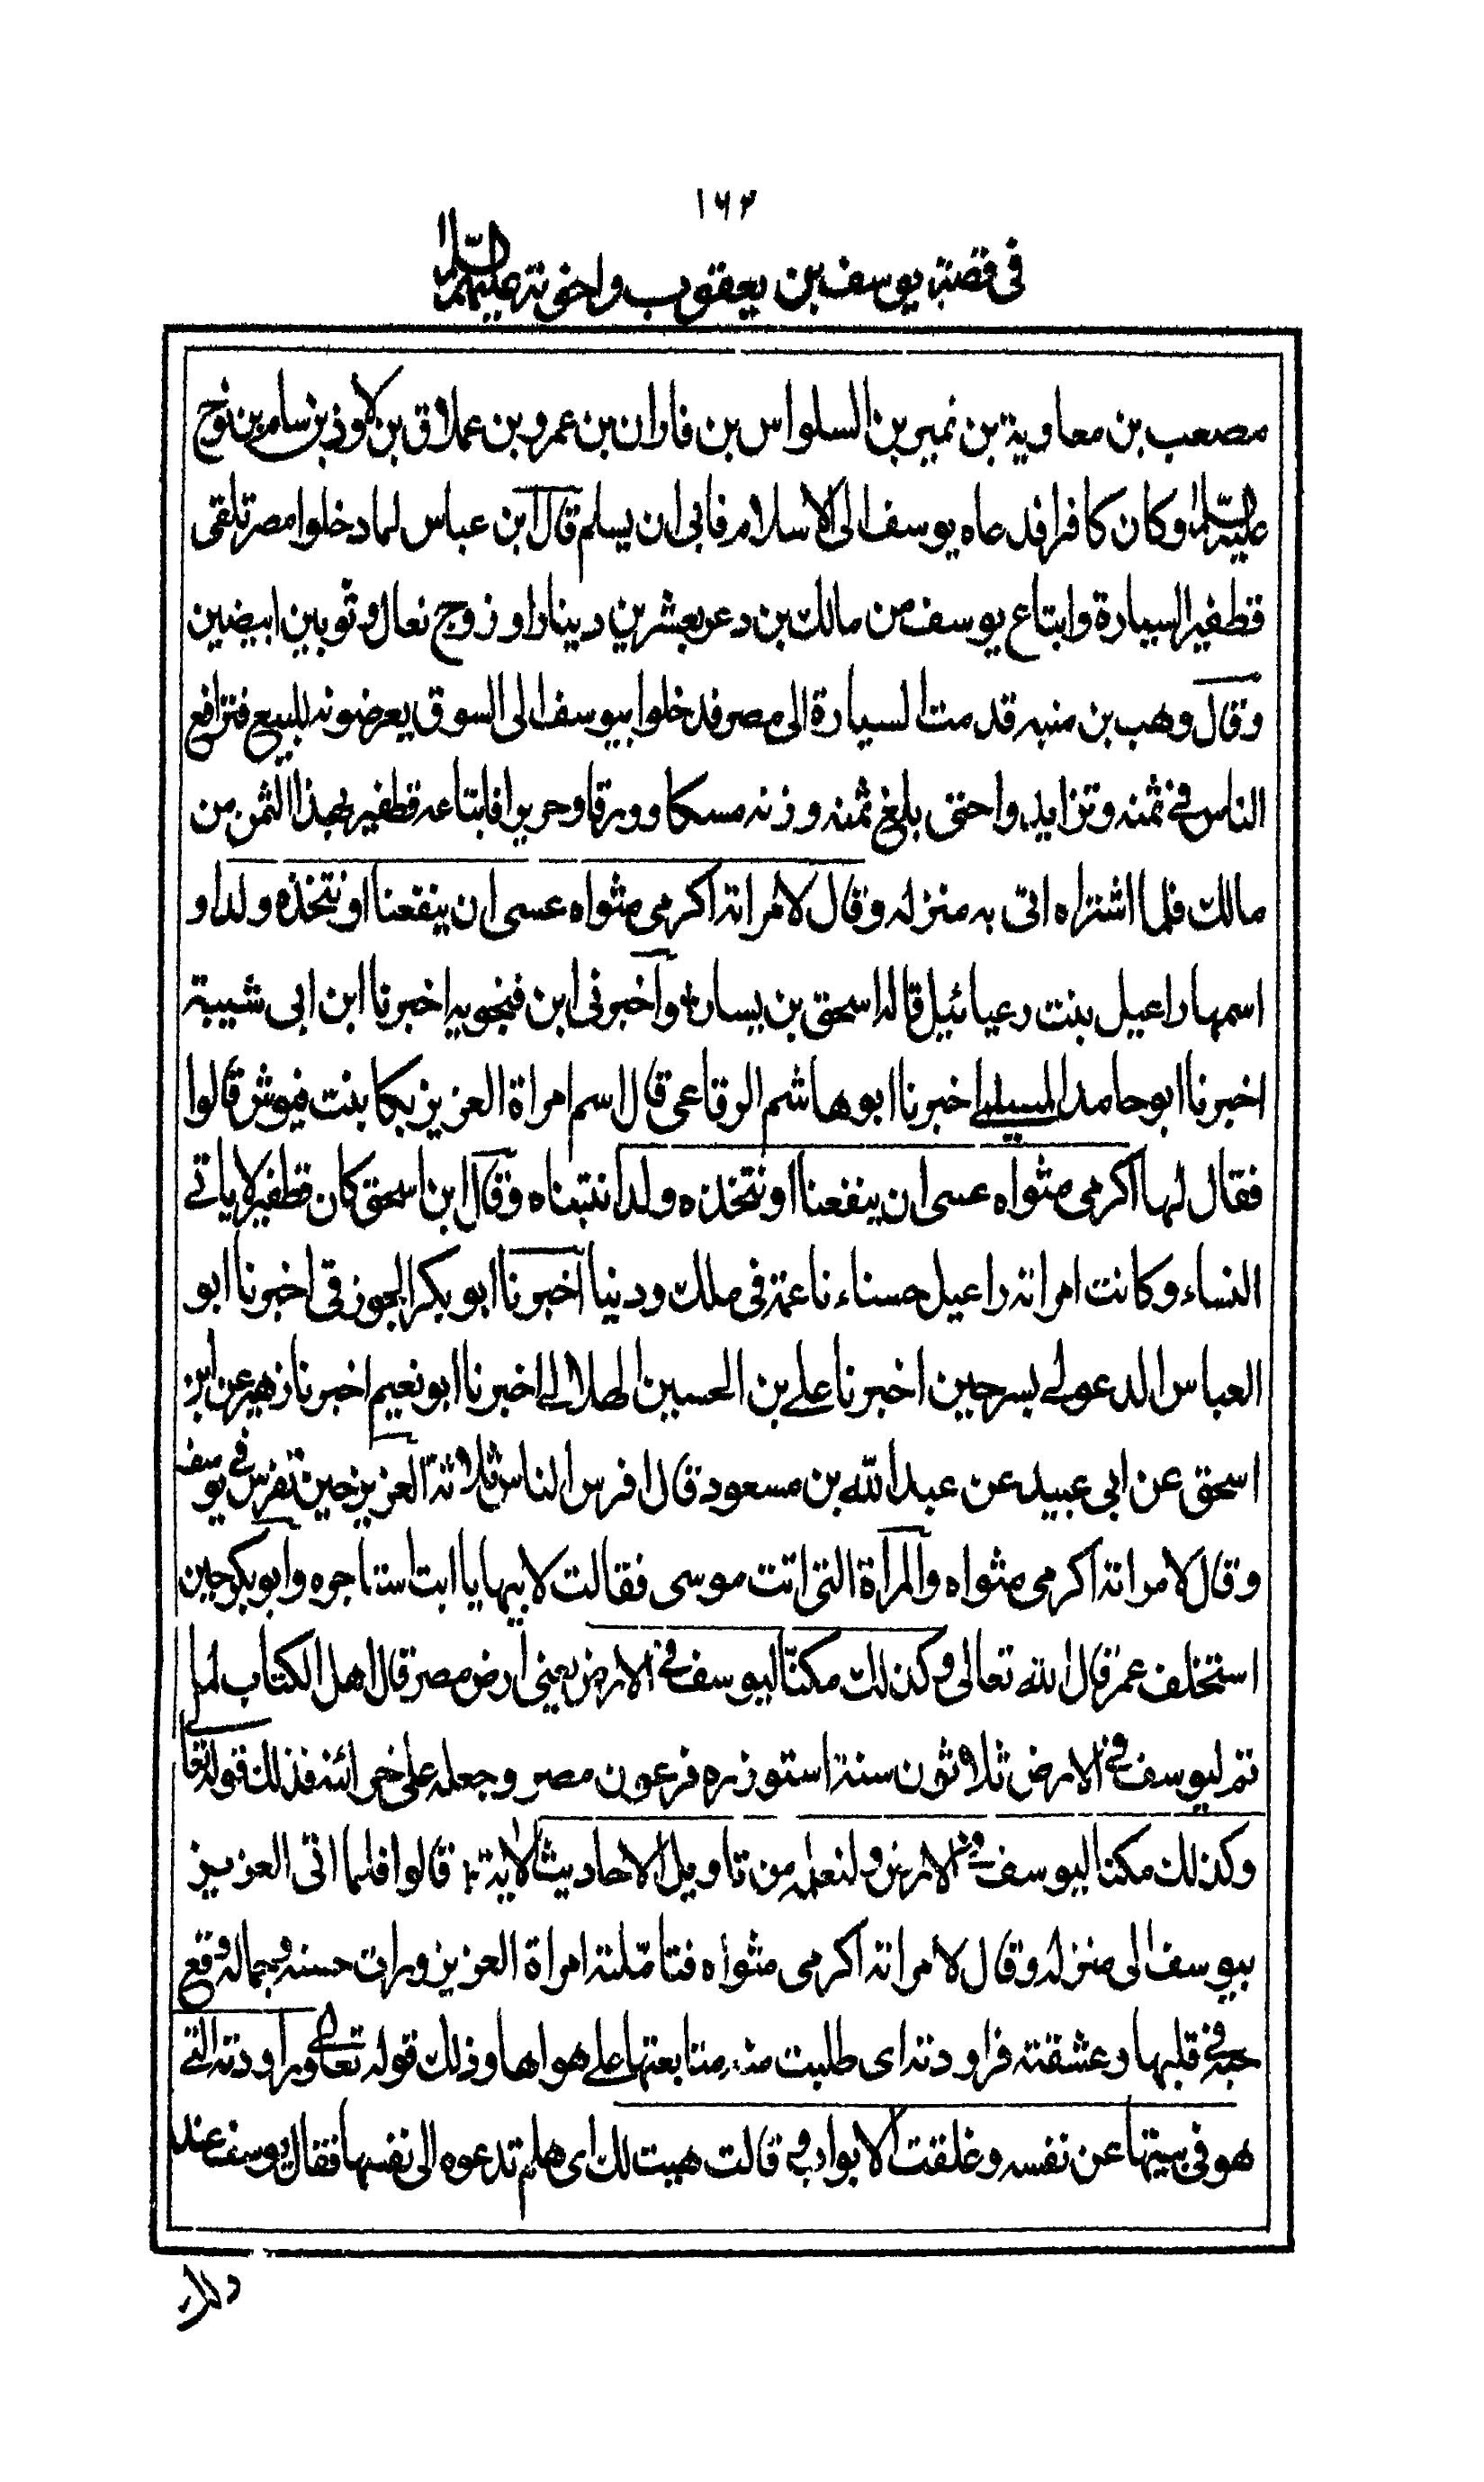 ١٦٢
فى قصة يوسف بن يعقوب واخوته عليهم السلام
مصعب بن معاوية بن نمير بن السلواس بن فاران بن عمرو بن عملاق بن لاوذ بن سام بن نوح
عليه السلام وكان كافرا فدعاه يوسف الى الاسلام فابى ان يسلم قال ابن عباس لما دخلوا مصر تلقى
قطفير السيارة وابتاع يوسف من مالك بن دعر بعشرين دينارا وزوج نعال وثوبين ابيضين
وقال وهب بن منبه قدمت السيارة الى مصر فدخلوا بيوسف الى السوق يعرضونه للبيع فترافع
الناس فى ثمنه وتزايدوا حتى بلغ ثمنه وزنه مسكا وورقا وحريرا فابتاعه قطفير بهذا الثمن من
مالك فلما اشتراه اتى به منزله وقال لامراته اكرمى مثواه عسى ان ينفعنا او نتخذه ولدا و
اسمها راعيل بنت رعيائيل قاله اسحق بن يسار واخبرنى ابن فنجويه اخبرنا ابن ابى شيبة
اخبرنا ابو حامد المسيلى اخبرنا ابو هاشم الرقاعى قال اسم امراة العزيز بكا بنت فيوش قالوا
فقال لها اكرمى مثواه عسى ان ينفعنا او نتخذه ولدا نتبناه وقال ابن اسحق كان قطفير لا ياتى
النساء وكانت امراته راعيل حسناء ناعمة فى ملك ودنيا اخبرنا ابو بكر الجوزقى اخبرنا ابو
العباس الدعولى بسرجين اخبرنا على بن الحسين الهلالى اخبرنا ابو نعيم اخبرنا زهير عن ابن
اسحق عن ابى عبيد عن عبد الله بن مسعود قال افرس الناس ثلاثة العزيز حين تفرس فى يوسف
وقال لامراته اكرمى مثواه والمراة التى اتت موسى فقالت لابيها يا ابت استاجره وابو بكر حين
استخلف عمر قال الله تعالى وكذلك مكنّا ليوسف فى الارض يعنى ارض مصر قال اهل الكتاب لما
تم ليوسف فى الارض ثلاثون سنة استوزره فرعون مصر وجعله على خزائنه فذلك قوله تعا
وكذلك مكنا ليوسف فى الارض ولنعلمه من تاويل الاحاديث الاية قالوا فلما اتى العزيز
بيوسف الى منزله وقال لامراته اكرمى مثواه فتامّلته امراة العزيز ورات حسنه وجماله وقع
حبه فى قلبها وعشقته فراودته اى طلبت منه متابعتها على هواها وذلك قوله تعالى وراودته التى
هو فى بيتها عن نفسه وغلقت الابواب وقالت هيت لك اى هلم تدعوه الى نفسها فقال يوسف عند